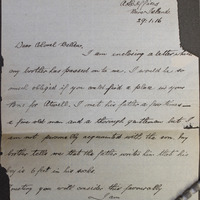 29.1.16
Dear Colonel
I am enclosing a letter which
my brother has passed on to me. I would be so
much obliged if you could find a place in your
for Atwell. I met his father a few times -
a fine old man and a thorough gentleman but I
am not personally acquainted with the son. My
brother tells me that the father writes him that his
boy is
you will consider this favourably
I am